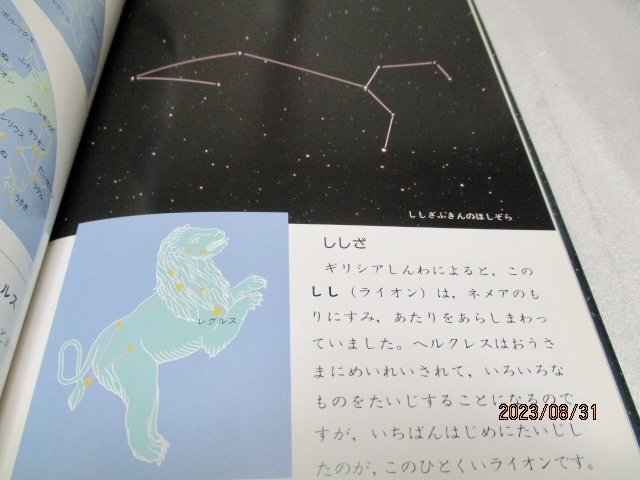 ししざふきんのほしぞら
レグルス
ししざ
ギリシアしんわによると，この
しし（ライオン）は，ネメアのも
りにすみ，あたりをあらしまわっ
ていました。ヘルクレスはおうさ
まにめいれいされて，いろいろな
ものをたいじすることになるので
すが，いちばんはじめにたいじし
たのが，このひとくいライオンです。
2023/08/31